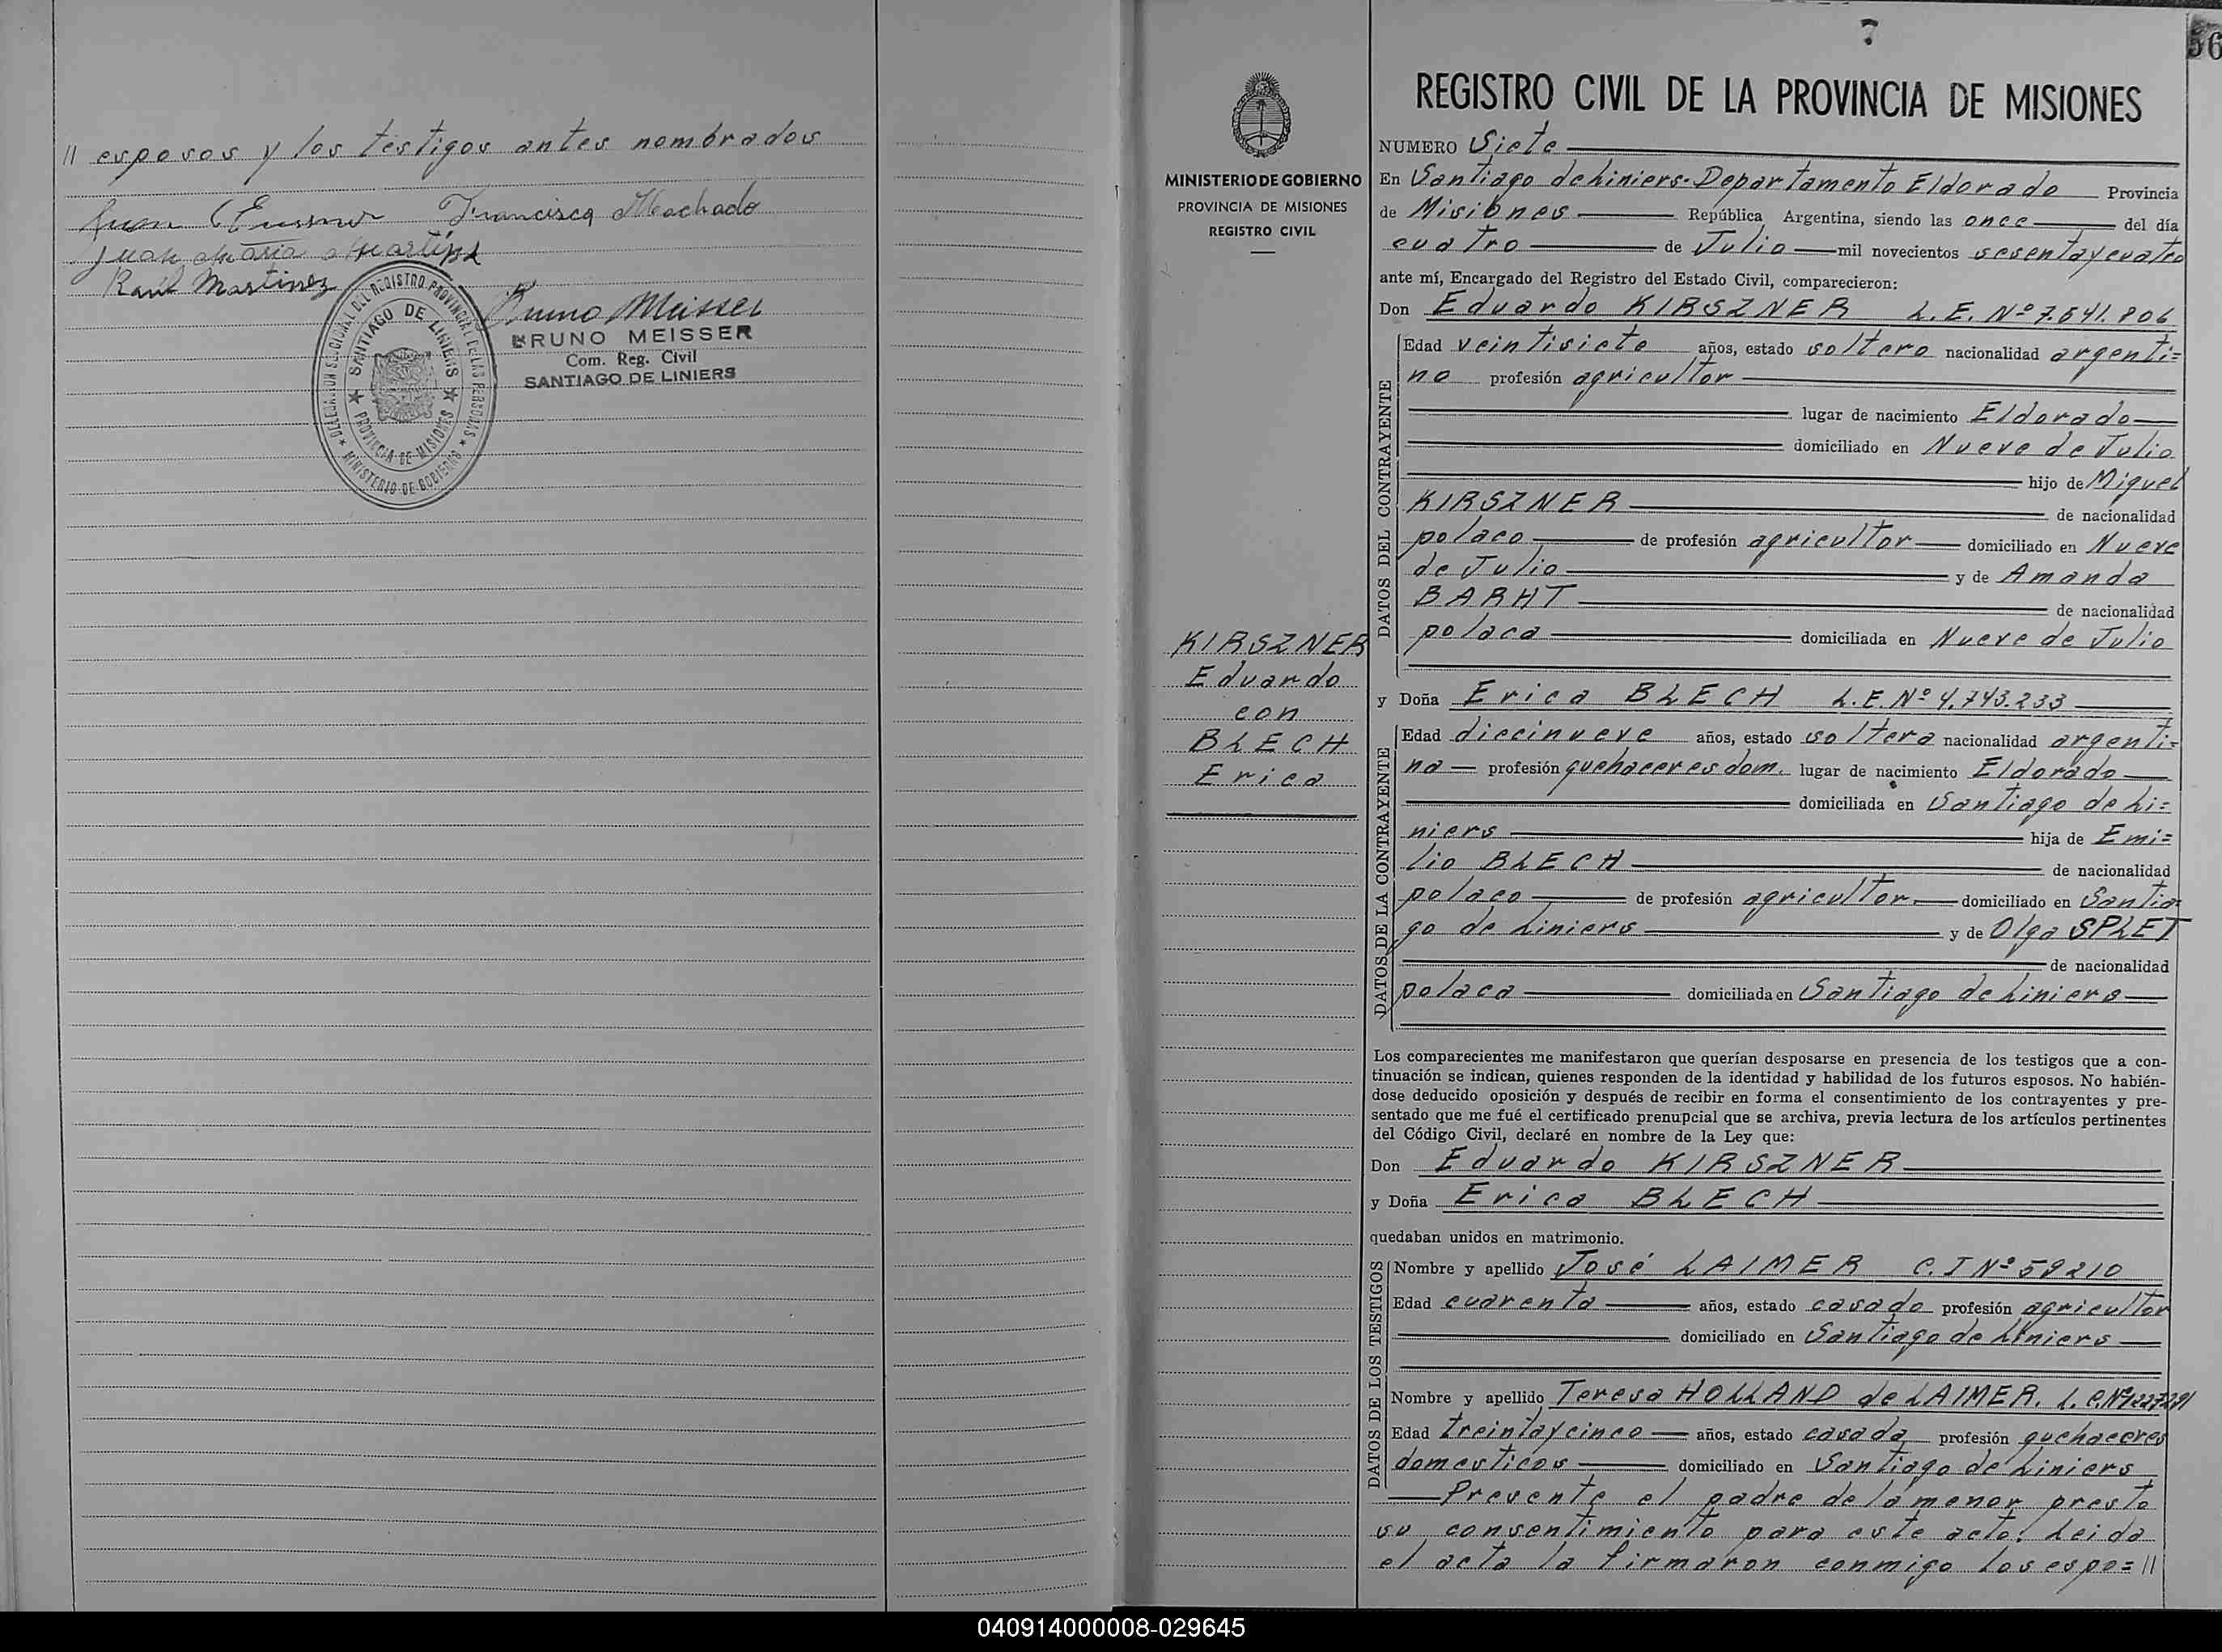 // esposos y los testigos antes nombrados
Francisca Machado
Juan Maria Martinez
Raul Martinez
Bruno Meisser
BRUNO MEISSER
Com. Reg. Civil
SANTIAGO DE LINIERS
SANTIAGO DE LINIERS
PROVINCIA DE MISIONES
MINISTERIO DE GOBIERNO
56
MINISTERIO DE GOBIERNO
PROVINCIA DE MISIONES
REGISTRO CIVIL
KIRSZNER
Eduardo
con
BLECH
Erica
REGISTRO CIVIL DE LA PROVINCIA DE MISIONES
NUMERO Siete
En Santiago de Liniers-Departamento Eldorado Provincia
de Misiones República Argentina, siendo las once del día
cuatro de Julio mil novecientos sesentaycuatro
ante mí, Encargado del Registro del Estado Civil, comparecieron:
Don Eduardo KIRSZNER L.E. Nº 7.541.806
DATOS DEL CONTRAYENTE
Edad veintisiete años, estado soltero nacionalidad argenti=
no profesión agricultor
lugar de nacimiento Eldorado
domiciliado en Nueve de Julio
hijo de Miguel
KIRSZNER de nacionalidad
polaco de profesión agricultor domiciliado en Nueve
de Julio y de Amanda
BARHT de nacionalidad
polaca domiciliada en Nueve de Julio
y Doña Erica BLECH L.E. Nº 4.743.233
DATOS DE LA CONTRAYENTE
Edad diecinueve años, estado soltera nacionalidad argenti=
na profesión quehaceres dom. lugar de nacimiento Eldorado
domiciliada en Santiago de Li=
niers hija de Emi=
lio BLECH de nacionalidad
polaco de profesión agricultor domiciliado en Santia
go de Liniers y de Olga SPLET
de nacionalidad
polaca domiciliada en Santiago de Liniers
Los comparecientes me manifestaron que querían desposarse en presencia de los testigos que a con-
tinuación se indican, quienes responden de la identidad y habilidad de los futuros esposos. No habién-
dose deducido oposición y después de recibir en forma el consentimiento de los contrayentes y pre-
sentado que me fué el certificado prenupcial que se archiva, previa lectura de los artículos pertinentes
del Código Civil, declaré en nombre de la Ley que:
Don Eduardo KIRSZNER
y Doña Erica BLECH
quedaban unidos en matrimonio.
DATOS DE LOS TESTIGOS
Nombre y apellido José LAIMER C.I Nº 59210
Edad cuarenta años, estado casado profesión agricultor
domiciliado en Santiago de Liniers
Nombre y apellido Teresa HOLLAND de LAIMER. L.C.Nº
Edad treintaycinco años, estado casada profesión quehaceres
domesticos domiciliado en Santiago de Liniers
Presente el padre de la menor presto
su consentimiento para este acto. Leida
el acta la firmaron conmigo los espo=//
040914000008-029645